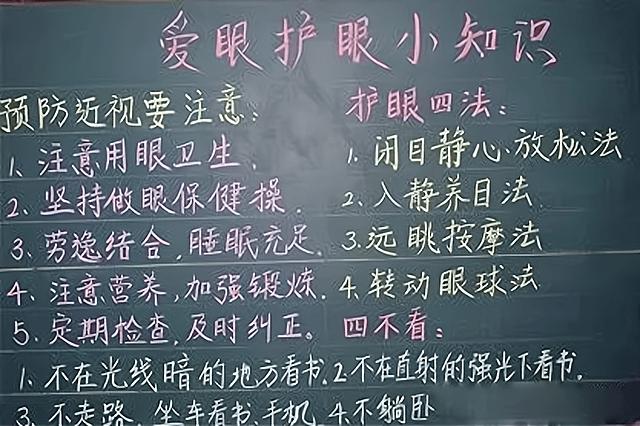 爱眼护眼小知识
预防近视要注意:
1. 注意用眼卫生.
2. 坚持做眼保健操.
3. 劳逸结合,睡眠充足.
4. 注意营养,加强锻炼.
5. 定期检查,及时纠正。
护眼四法:
1. 闭目静心、放松法
2. 入静养目法
3. 远眺按摩法
4. 转动眼球法
四不看:
1. 不在光线暗的地方看书. 2 不在直射的强光下看书.
3. 不走路、坐车看书、手机 4. 不躺卧